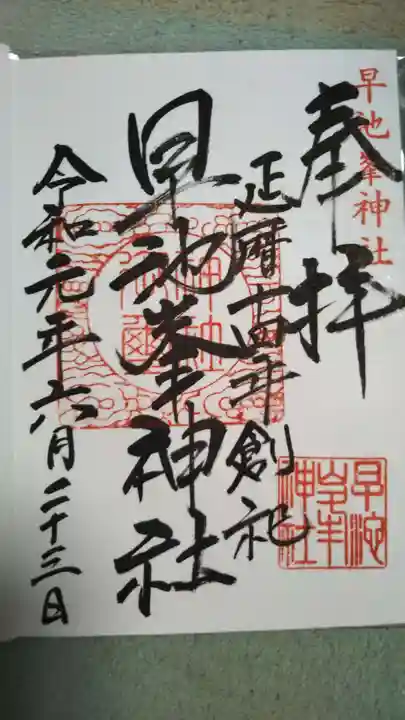 早池峯神社
奉拝
延暦十四年創祀
早池峯神社
令和元年六月二十三日
早池
峯
神社